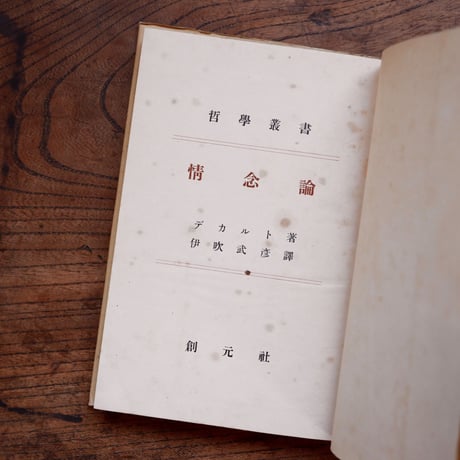 哲學叢書
情念論
デカルト著
伊吹武彦譯
創元社